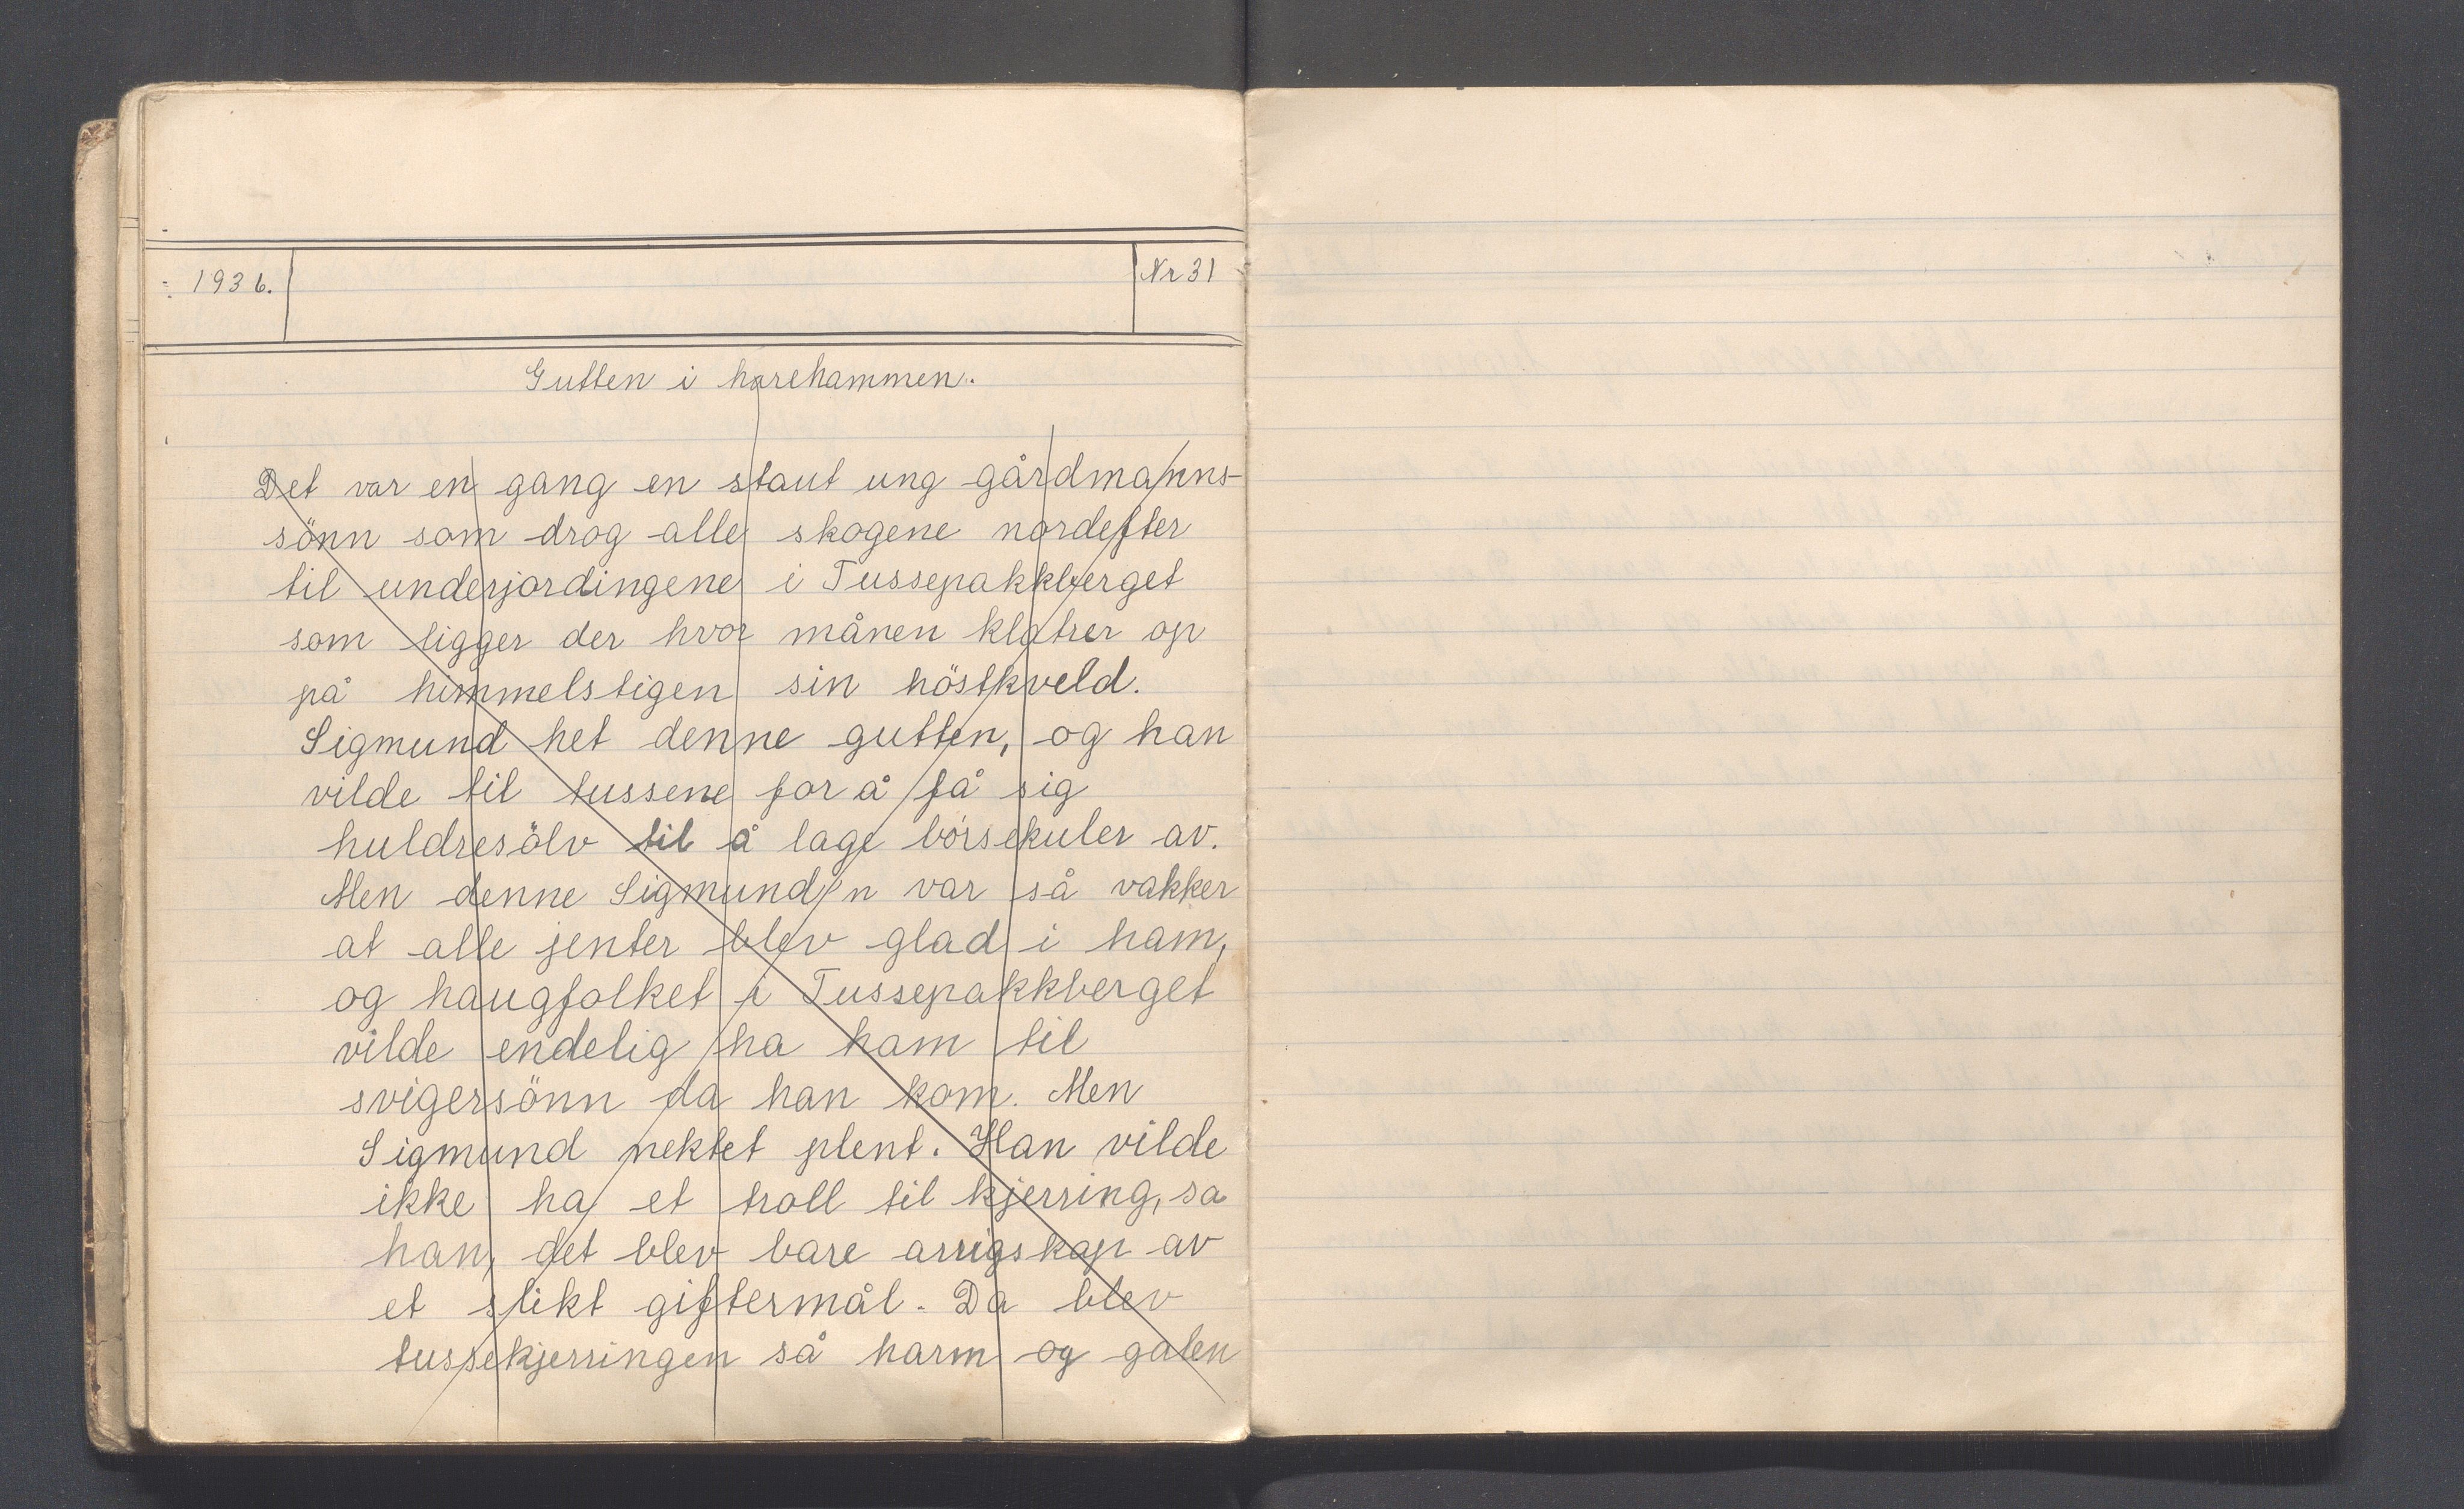 1936.
Nr 31
Gutten i harehammen.
Det var en gang en staut ung gårdmanns-
sönn som drog alle skogene nordefter
til underjordingene i Tussepakkberget
som ligger der hvor månen klatrer op
på himmelstigen sin höstkveld.
Sigmund het denne gutten, og han
vilde til tussene for å få sig
huldresölv til å lage börsekuler av.
Men denne Sigmund'n var så vakker
at alle jenter blev glad i ham,
og haugfolket i Tussepakkberget
vilde endelig ha ham til
svigersönn da han kom. Men
Sigmund nektet plent. Han vilde
ikke ha et troll til kjerring, sa
han, det blev bare arrigskap av
et slikt giftermål. Da blev
tussekjerringen så harm og galen